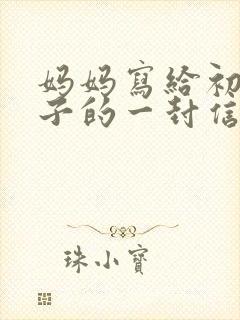 妈妈寫給初
子的一封信
珠小寶